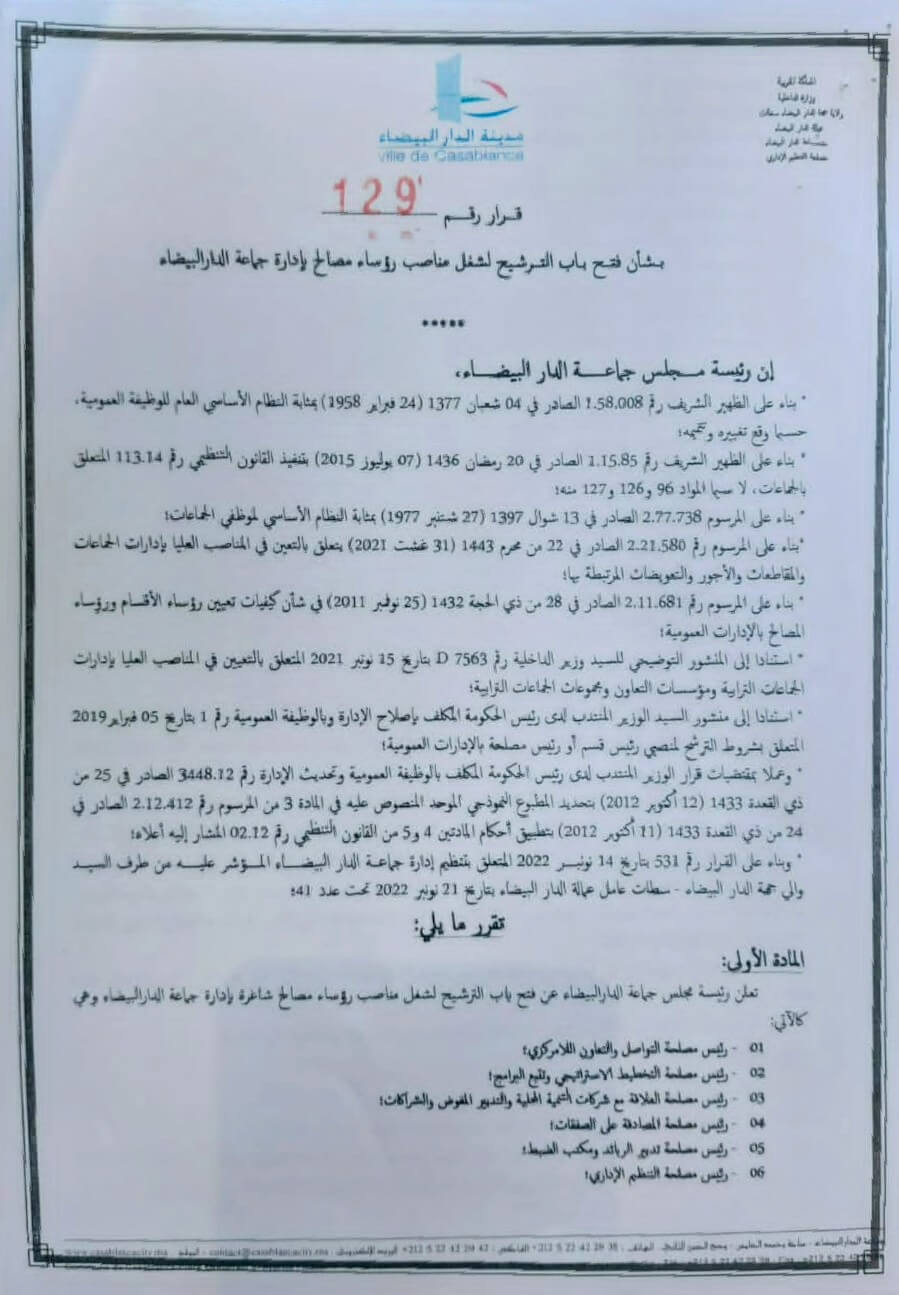 المملكة المغربية
وزارة الداخلية
ولاية جهة الدار البيضاء سطات
عمالة الدار البيضاء
جماعة الدار البيضاء
مصلحة التنظيم الإداري
مدينة الدار البيضاء
ville de Casablanca
قرار رقم 129
بشأن فتح باب الترشيح لشغل مناصب رؤساء مصالح بإدارة جماعة الدارالبيضاء
*****
إن رئيسة مجلس جماعة الدار البيضاء،
* بناء على الظهير الشريف رقم 1.58.008 الصادر في 04 شعبان 1377 (24 فبراير 1958) بمثابة النظام الأساسي العام للوظيفة العمومية،
حسبما وقع تغييره وتتميمه؛
* بناء على الظهير الشريف رقم 1.15.85 الصادر في 20 رمضان 1436 (07 يوليوز 2015) بتنفيذ القانون التنظيمي رقم 113.14 المتعلق
بالجماعات، لا سيما المواد 96 و126 و127 منه؛
* بناء على المرسوم رقم 2.77.738 الصادر في 13 شوال 1397 (27 شتنبر 1977) بمثابة النظام الأساسي لموظفي الجماعات؛
*بناء على المرسوم رقم 2.21.580 الصادر في 22 من محرم 1443 (31 غشت 2021) يتعلق بالتعيين في المناصب العليا بإدارات الجماعات
والمقاطعات والأجور والتعويضات المرتبطة بها؛
* بناء على المرسوم رقم 2.11.681 الصادر في 28 من ذي الحجة 1432 (25 نوفمبر 2011) في شأن كيفيات تعيين رؤساء الأقسام ورؤساء
المصالح بالإدارات العمومية؛
* استنادا إلى المنشور التوضيحي للسيد وزير الداخلية رقم D 7563 بتاريخ 15 نونبر 2021 المتعلق بالتعيين في المناصب العليا بإدارات
الجماعات الترابية ومؤسسات التعاون ومجموعات الجماعات الترابية؛
* استنادا إلى منشور السيد الوزير المنتدب لدى رئيس الحكومة المكلف بإصلاح الإدارة وبالوظيفة العمومية رقم 1 بتاريخ 05 فبراير 2019
المتعلق بشروط الترشح لمنصبي رئيس قسم أو رئيس مصلحة بالإدارات العمومية؛
* وعملا بمقتضيات قرار الوزير المنتدب لدى رئيس الحكومة المكلف بالوظيفة العمومية وتحديث الإدارة رقم 3448.12 الصادر في 25 من
ذي القعدة 1433 (12 أكتوبر 2012) بتحديد المطبوع النموذجي الموحد المنصوص عليه في المادة 3 من المرسوم رقم 2.12.412 الصادر في
24 من ذي القعدة 1433 (11 أكتوبر 2012) بتطبيق أحكام المادتين 4 و5 من القانون التنظيمي رقم 02.12 المشار إليه أعلاه؛
* وبناء على القرار رقم 531 بتاريخ 14 نونبر 2022 المتعلق بتنظيم إدارة جماعة الدار البيضاء المؤشر عليه من طرف السيد
والي جهة الدار البيضاء - سطات عامل عمالة الدار البيضاء بتاريخ 21 نونبر 2022 تحت عدد 41؛
تقرر ما يلي:
المادة الأولى:
تعلن رئيسة مجلس جماعة الدارالبيضاء عن فتح باب الترشيح لشغل مناصب رؤساء مصالح شاغرة بإدارة جماعة الدارالبيضاء وهي
كالآتي:
01 - رئيس مصلحة التواصل والتعاون اللامركزي؛
02 - رئيس مصلحة التخطيط الاستراتيجي وتتبع البرامج؛
03 - رئيس مصلحة العلاقة مع شركات التنمية المحلية والتدبير المفوض والشراكات؛
04 - رئيس مصلحة المصادقة على الصفقات؛
05 - رئيس مصلحة تدبير الرباند ومكتب الضبط؛
06 - رئيس مصلحة التنظيم الإداري؛
الهاتف : 38 29 42 22 5 212+ الفاكس : 42 29 42 22 5 212+ البريد الإلكتروني : contact@casablancacity.ma - الموقع : www.casablancacity.ma